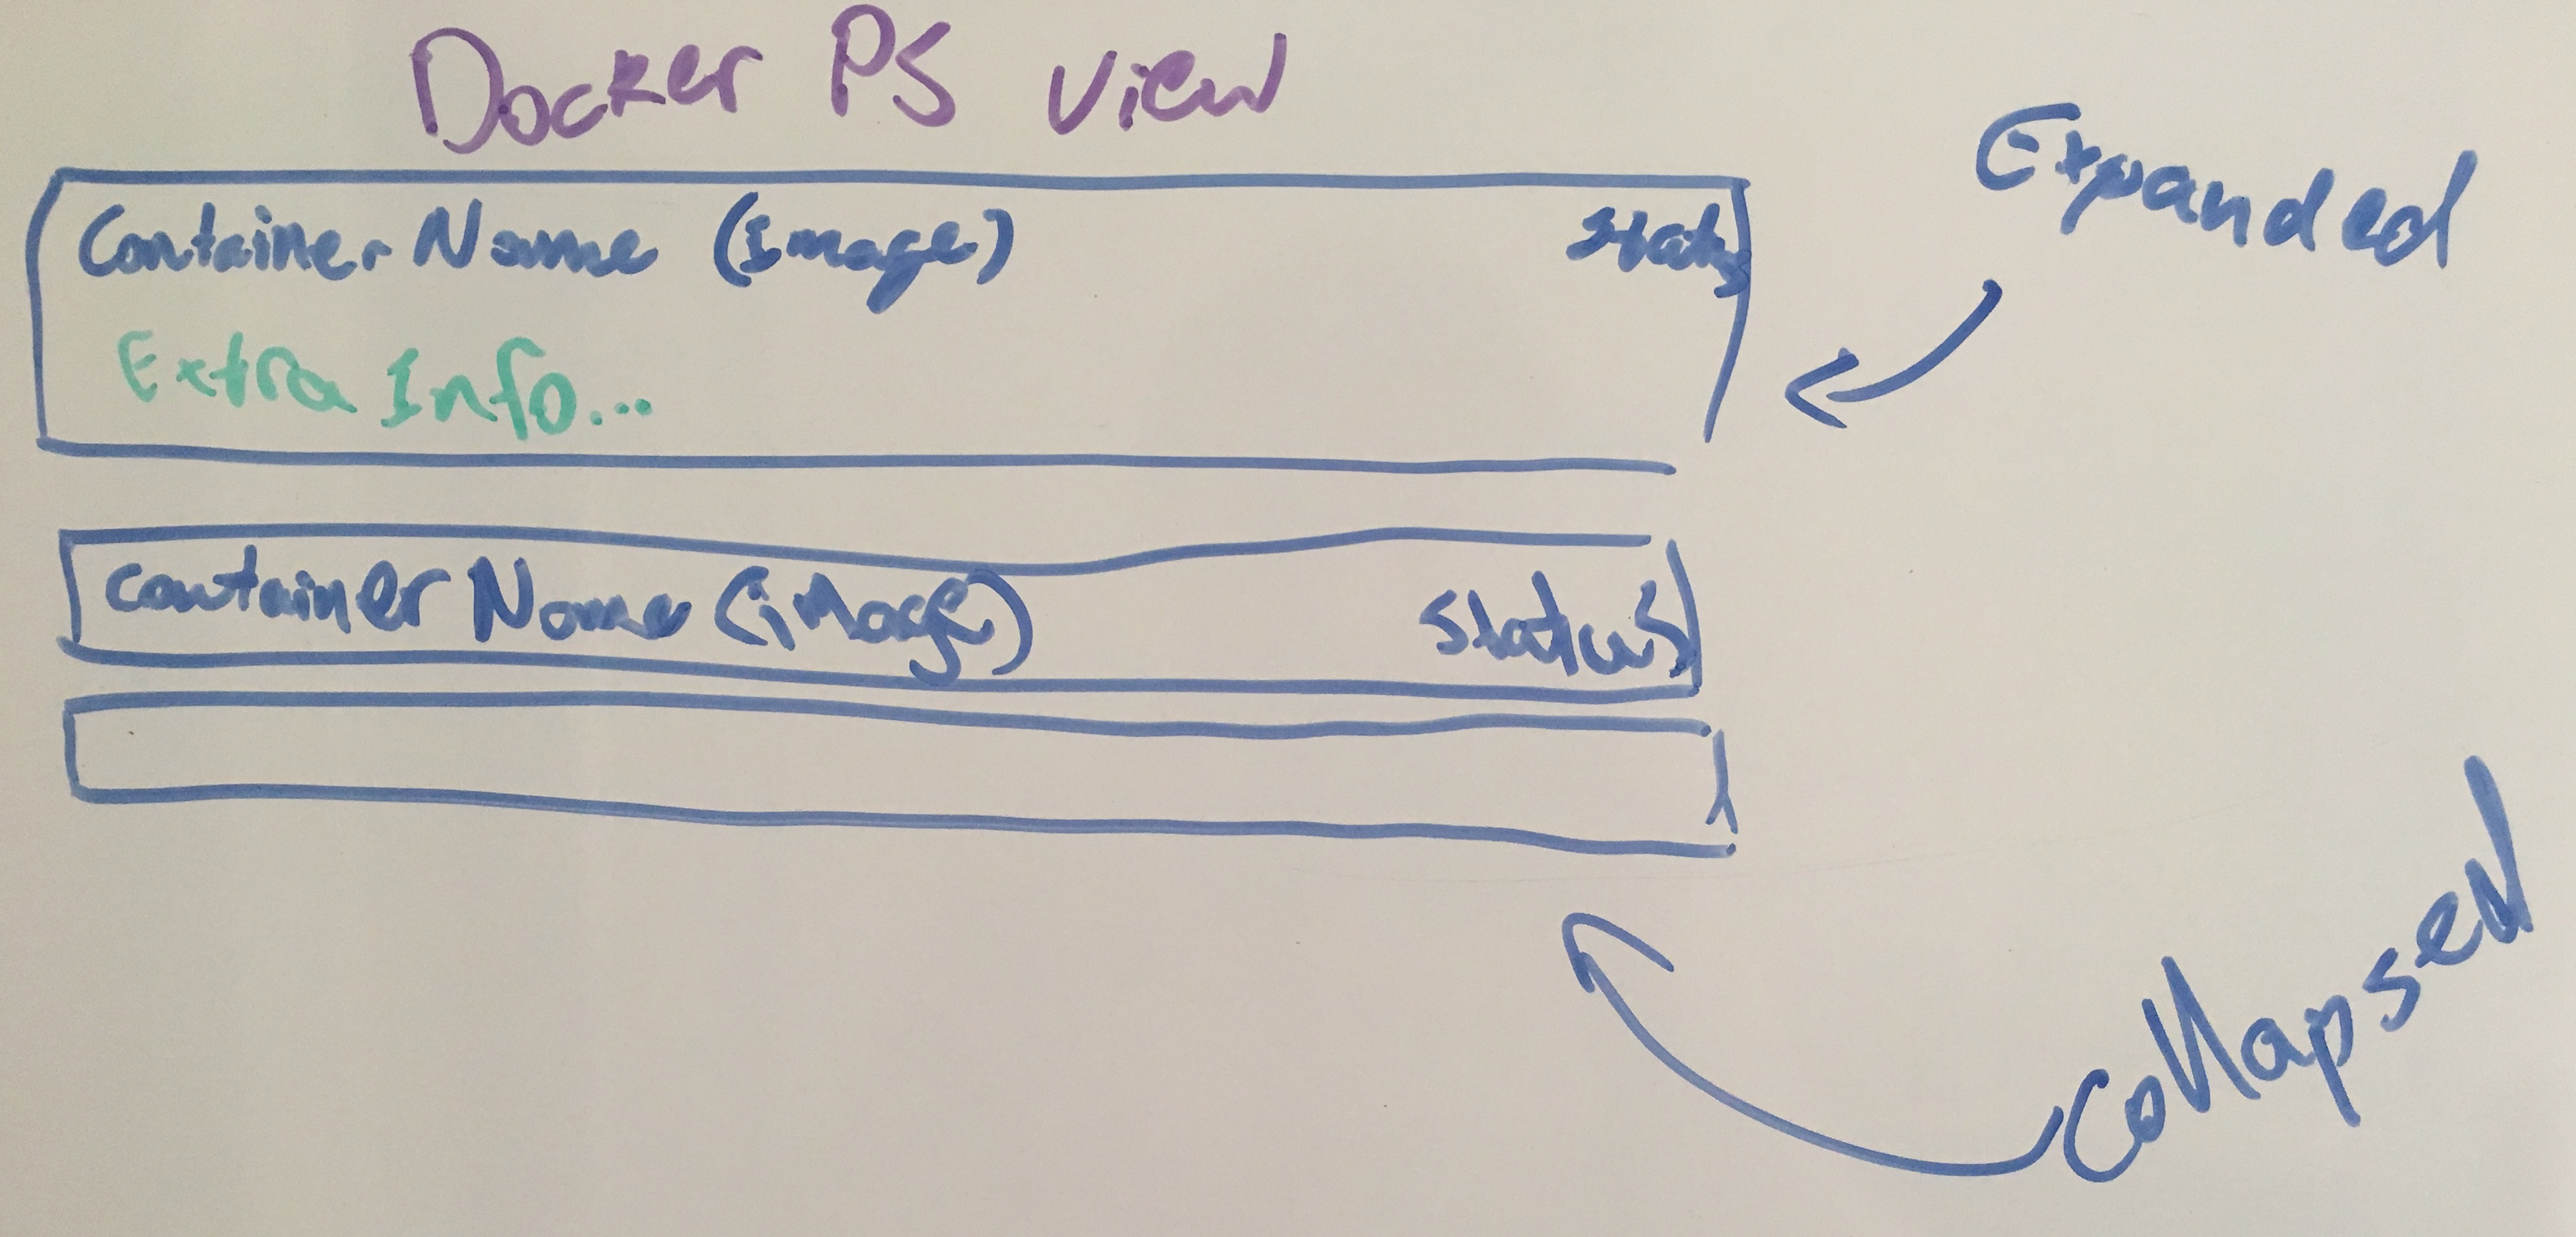 Docker PS view
Expanded
Container Name (Image) status
Extra Info...
container Name (image) status
collapsed